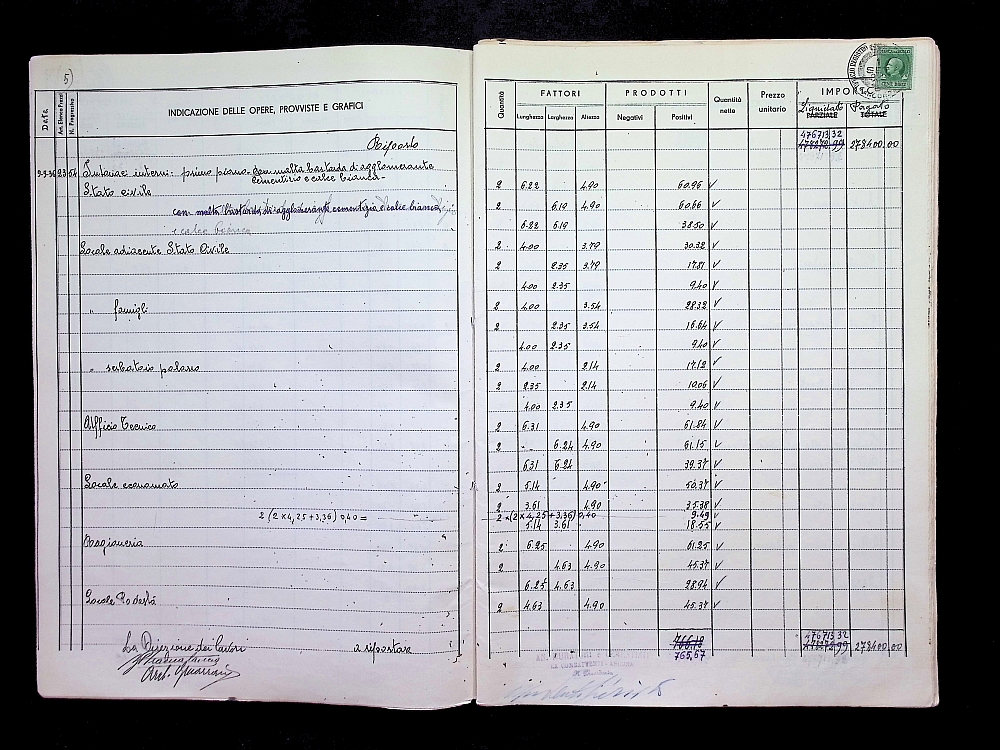 5)
Date
Art. Elenco Prezzi
N. Progressivo
INDICAZIONE DELLE OPERE, PROVVISTE E GRAFICI
Quantità
FATTORI
PRODOTTI
Quantità nette
Prezzo unitario
IMPORTO
Lunghezza Larghezza Altezza
Negativi Positivi
Liquidato Pagato
PARZIALE TOTALE
Riposto
476713,32
278400.00
Intonaci interni: primo piano con malta bastarda di agglomerante
cementizio e calce bianca
Stato civile 2 6.22 4.90 60.96 V
2 6.19 4.90 60.66 V
con malta bastarda di agglomerante cementizia e calce bianca
e calce bianca
6.22 6.19 38.50 V
Locale adiacente Stato Civile 2 4.00 3.79 30.32 V
2 2.35 3.79 17.81 V
4.00 2.35 9.40 V
" famigli 2 4.00 3.54 28.32 V
2 2.35 3.54 16.64 V
4.00 2.35 9.40 V
" serbatoio 2 4.00 2.14 17.12 V
2 2.35 2.14 10.06 V
4.00 2.35 9.40 V
Ufficio Tecnico 2 6.31 4.90 61.84 V
2 6.24 4.90 61.15 V
6.31 6.24 39.37 V
Locale economato 2 5.14 4.90 50.37 V
2 3.61 4.90 35.38 V
2 (2 x 4,25 + 3,36) 0,40 = 2 x (2 x 4,25 + 3,36) 0,40 9.49 V
5.14 3.61 18.55 V
Ragioneria 2 6.25 4.90 61.25 V
2 4.63 4.90 45.37 V
6.25 4.63 28.94 V
Locale Podestà 2 4.63 4.90 45.37 V
La Direzione dei lavori
a riportare
765,67
476713,32
278400.00